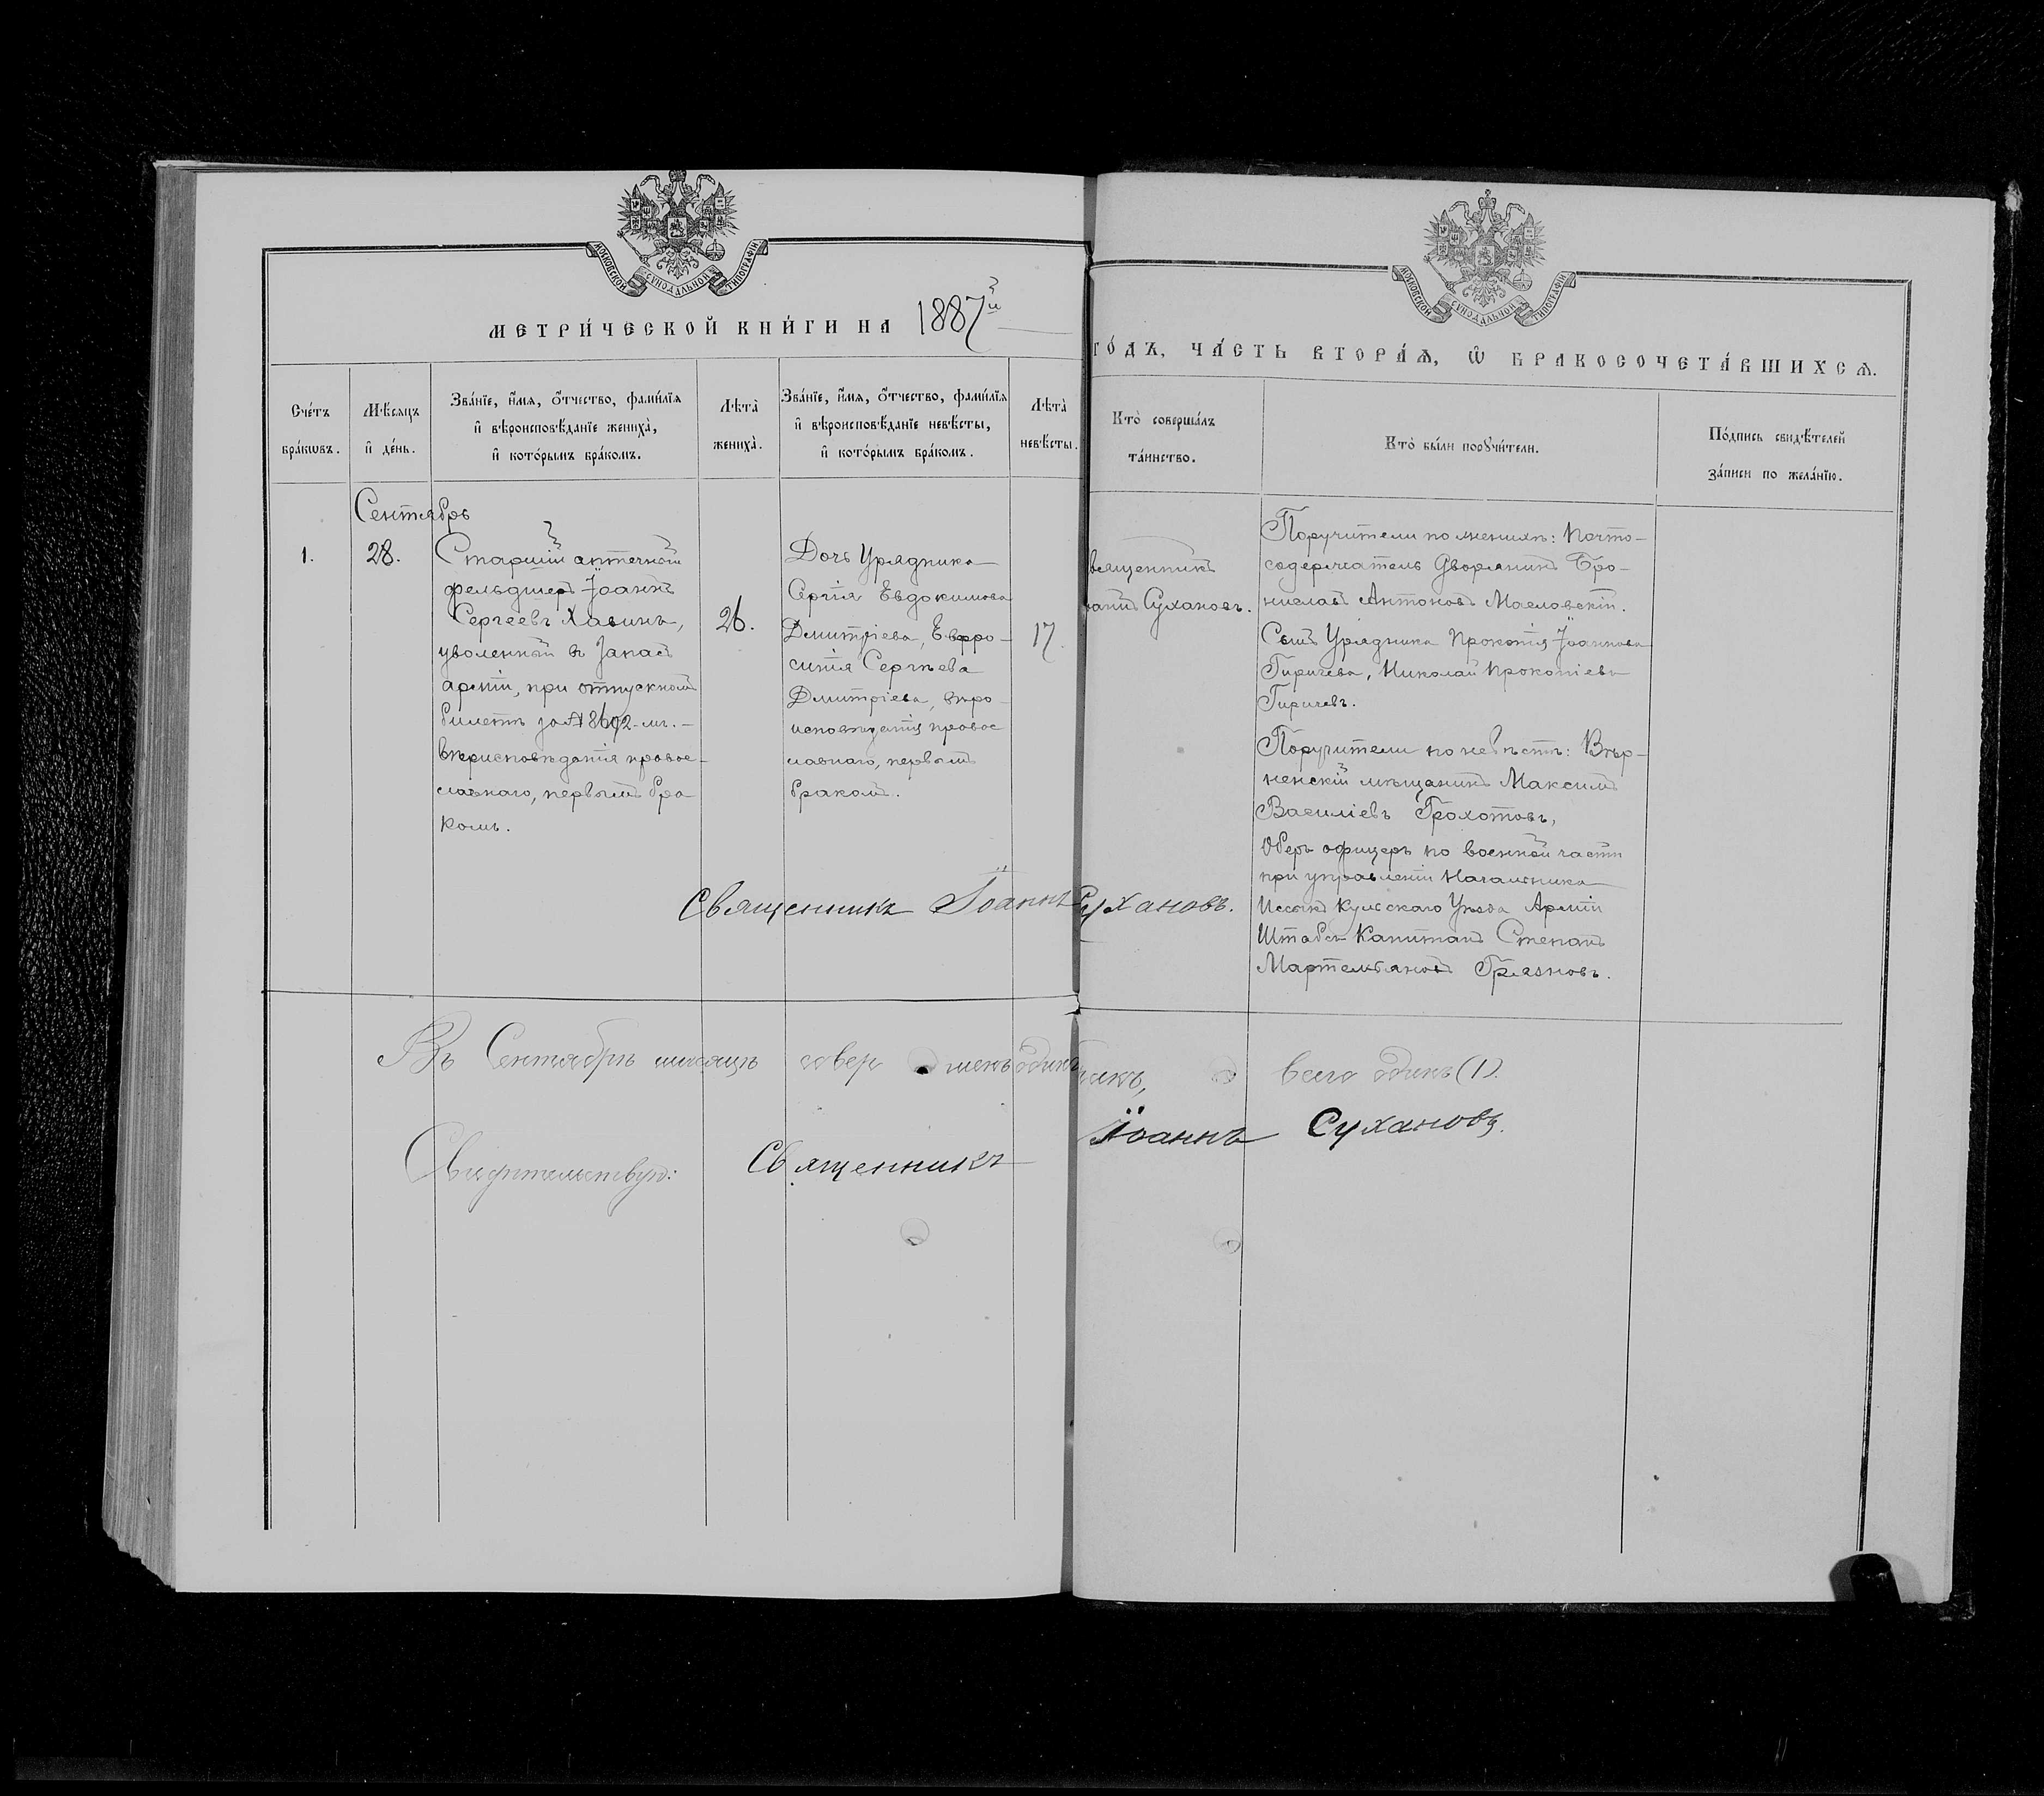 МОСКОВСКОЙ СУНОДАЛЬНОЙ ТИПОГРАФІИ
МОСКОВСКОЙ СУНОДАЛЬНОЙ ТИПОГРАФІИ
МЕТРИ́ЧЕСКОЙ КНИ́ГИ НА 1887й
ГО́ДЪ, ЧА́СТЬ ВТОРА́Ѧ, Ѿ БРАКОСОЧЕТА́ВШИХСѦ.
Сче́тъ бра́кѡвъ.
Мѣ́сѧцъ и҆ де́нь.
Зва́нїе, и҆́мѧ, ѻ҆́тчество, фами́лїѧ и҆ вѣроисповѣ́данїе жениха̀, и҆ кото́рымъ бра́комъ.
Лѣта̀ жениха̀.
Зва́нїе, и҆́мѧ, ѻ҆́тчество, фами́лїѧ и҆ вѣроисповѣ́данїе невѣ́сты, и҆ кото́рымъ бра́комъ.
Лѣта̀ невѣ́сты.
Кто̀ соверша́лъ та́инство.
Кто̀ бы́ли порꙋчи́тели.
По́дпись свидѣ́телей за́писи по жела́нїю.
Сентябрь
1.
28.
Старшій аптечный
фельдшеръ Іоаннъ
Сергеевъ Хавинъ,
уволенный въ Запасъ
арміи, при отпускномъ
билетѣ за № 8692-мъ. –
вѣрисповѣданія правос-
славнаго, первымъ бра-
комъ.
26.
Дочь Урядника
Сергія Евдокимова
Дмитріева, Евфро-
синія Сергѣева
Дмитріева, вѣро-
исповѣданія правос
лавнаго, первымъ
бракомъ.
17.
вященникъ
оаннъ Сухановъ.
Поручители по женихѣ: Почто-
содержатель Дворянинъ Бро-
ниславъ Антоновъ Масловскій.
Сынъ Урядника Прокопія Іоаннова
Гиричева, Николай Прокопіевъ
Гиричевъ.
Поручители по невѣстѣ: Вѣр-
ненскій мѣщанинъ Максимъ
Василіевъ Грохотовъ,
Оберъ офицеръ по военной части
при управленіи Начальника
Иссыкъ Кульскаго Уѣзда Арміи
Штабсъ Капитанъ Степанъ
Мартемьяновъ Грязновъ.
Священникъ Іоаннъ Сухановъ.
Въ Сентябрѣ мѣсяцѣ совершенъ одинъ бракъ, всего одинъ (1).
Свидѣтельствую: Священникъ Іоаннъ Сухановъ.